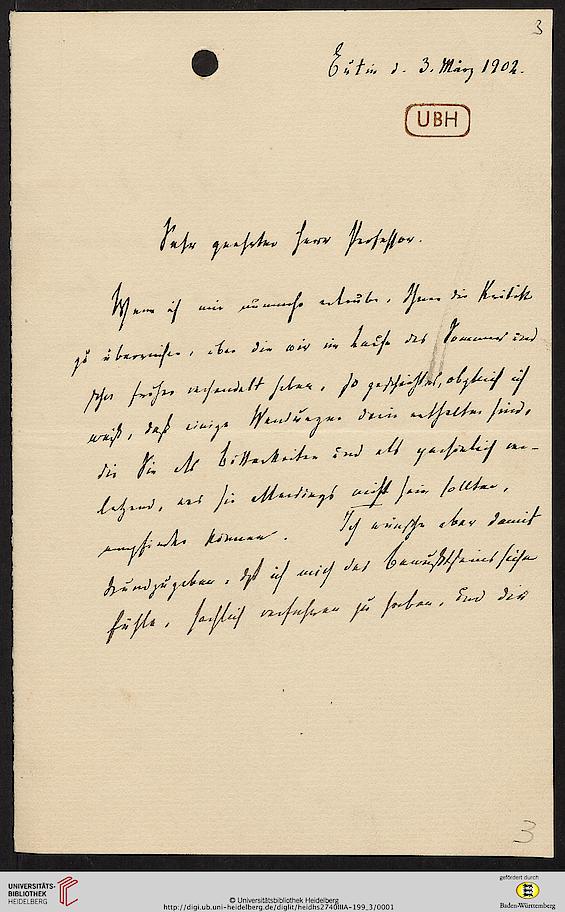 3
Eutin d. 3. März 1902.
UBH
Sehr geehrter Herr Professor.
Wenn ich mir nunmehr erlaube, Ihnen die Kritik
zu überreichen, über die wir im Laufe des Sommers und
schon früher verhandelt haben, so geschieht es, obgleich ich
weiß, daß einige Wendungen darin enthalten sind,
die Sie als Bitterkeiten und als persönlich ver-
letzend, was sie allerdings nicht sein sollten,
empfinden können. Ich wünsche aber damit
kundzugeben, daß ich mich des Bewußtseins sicher
fühle, sachlich verfahren zu haben, und die
3
UNIVERSITÄTS-
BIBLIOTHEK
HEIDELBERG
© Universitätsbibliothek Heidelberg
http://digi.ub.uni-heidelberg.de/diglit/heidhs2740IIIA-199_3/0001
gefördert durch
Baden-Württemberg